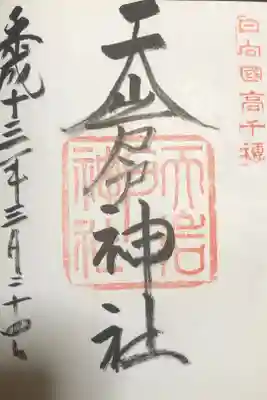 日向國高千穂
天岩戸神社
天岩
神社
平成十三年三月二十四日